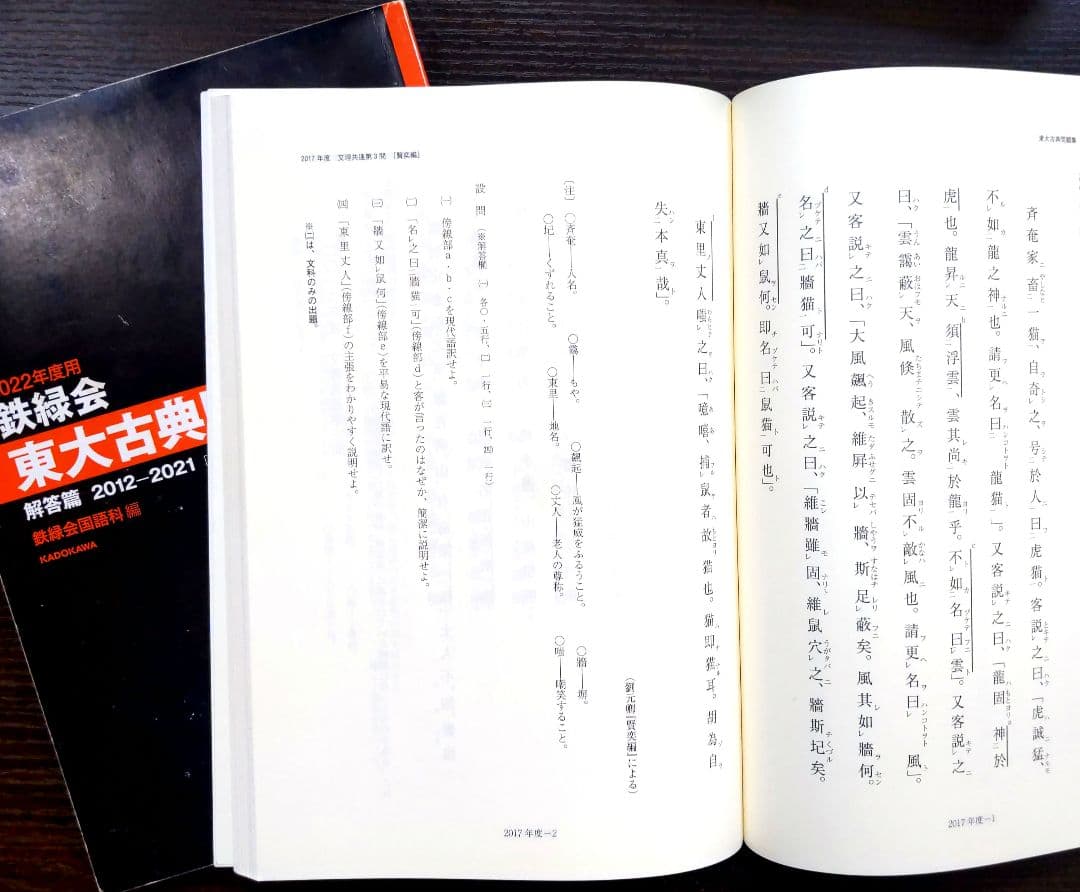 東大古典問題集
斉奄家畜一猫、自奇之、号於人曰虎猫。客説之曰、「虎誠猛、
不如龍之神也。請更名曰龍猫」。又客説之曰、「龍固神於
虎也。龍昇天、須浮雲、雲其尚於龍乎。不如名曰雲」。又客説之
曰、「雲靄蔽天、風倏散之。雲固不敵風也。請更名曰風」。
又客説之曰、「大風飆起、維屏以牆、斯足蔽矣。風其如牆何。
名之曰牆猫可」。又客説之曰、「維牆雖固、維鼠穴之、牆斯圮矣。
牆又如鼠何。即名曰鼠猫可也」。
2017年度―1
2017年度 文理共通第3問 [賢奕編]
東里丈人嗤之曰、「噫嘻、捕鼠者故猫也。猫即猫耳。胡為自
失本真哉」。
(劉元卿『賢奕編』による)
〔注〕 ○斉奄――人名。 ○靄――もや。 ○飆起――風が猛威をふるうこと。 ○牆――塀。
○圮――くずれること。 ○東里――地名。 ○丈人――老人の尊称。 ○嗤――嘲笑すること。
設問 (※解答欄 ㈠ 各〇・五行、㈡ 一行、㈢ 一行、㈣ 一行)
㈠ 傍線部a・b・cを現代語訳せよ。
㈡ 「名之曰牆猫可」(傍線部d)と客が言ったのはなぜか、簡潔に説明せよ。
㈢ 「牆又如鼠何」(傍線部e)を平易な現代語に訳せ。
㈣ 「東里丈人」(傍線部f)の主張をわかりやすく説明せよ。
※㈡は、文科のみの出題。
2017年度―2
022年度用
鉄緑会
東大古典
解答篇 2012―2021
鉄緑会国語科 編
KADOKAWA